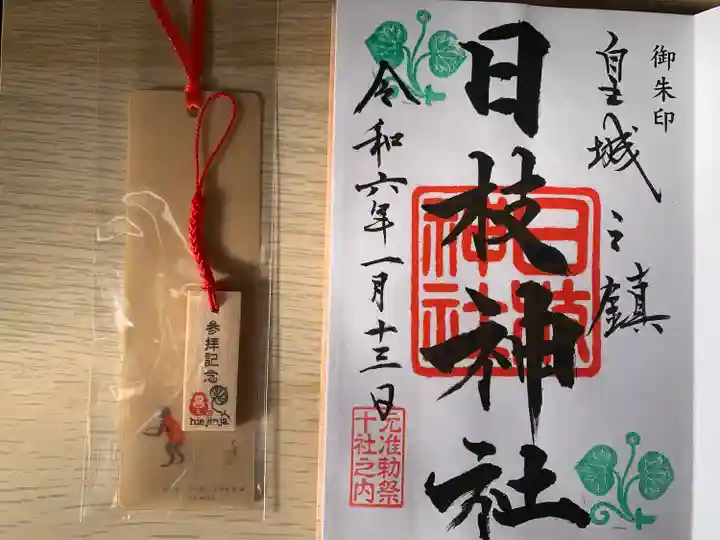 参拝記念
hie jinja
御朱印
皇城之鎮
日枝神社
日枝神社
令和六年一月十三日
元准勅祭
十社之内